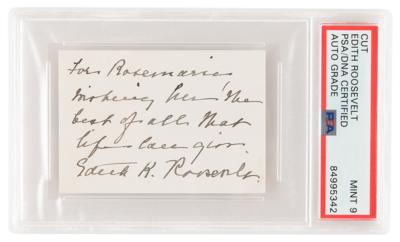 For Rosemarie
wishing her the
best of all that
life can give.
Edith K. Roosevelt.
CUT
EDITH ROOSEVELT
PSA/DNA CERTIFIED
AUTO GRADE
MINT 9
PSA
84995342